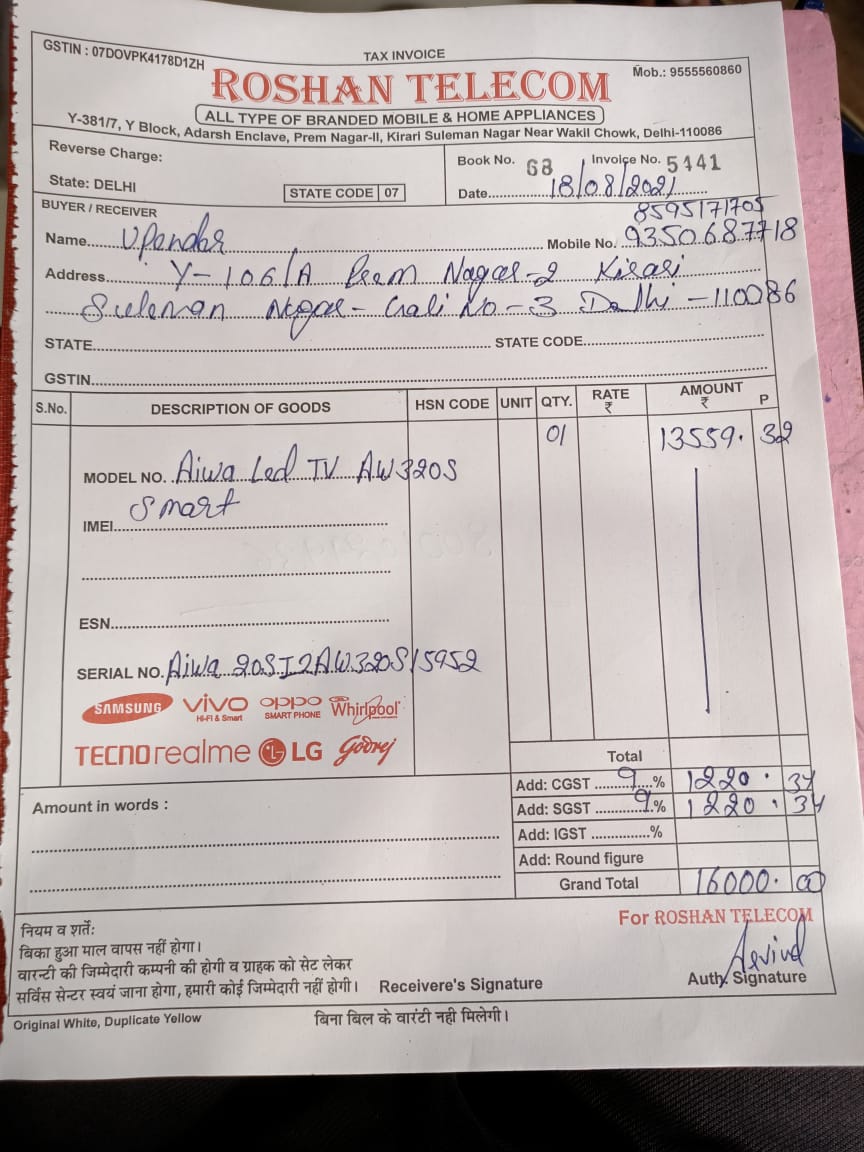 GSTIN : 07DOVPK4178D1ZH
TAX INVOICE
Mob.: 9555560860
ROSHAN TELECOM
ALL TYPE OF BRANDED MOBILE & HOME APPLIANCES
Y-381/7, Y Block, Adarsh Enclave, Prem Nagar-II, Kirari Suleman Nagar Near Wakil Chowk, Delhi-110086
Reverse Charge:
Book No. 68 Invoice No. 5441
State: DELHI STATE CODE 07
Date 18/08/2021
BUYER / RECEIVER
8595171705
Name Upender Mobile No. 9350687718
Address Y-106/A Prem Nagar-2 Kirari
Suleman Nagar - Gali No-3 Delhi -110086
STATE STATE CODE
GSTIN
S.No. DESCRIPTION OF GOODS HSN CODE UNIT QTY. RATE ₹ AMOUNT ₹ P
01 13559. 32
MODEL NO. Aiwa Led TV AW320S
Smart
IMEI
ESN
SERIAL NO. Aiwa 20SI2AW320S15952
SAMSUNG vivo HI-FI & Smart oppo SMART PHONE Whirlpool
TECNO realme LG Godrej
Total
Add: CGST 9 % 1220. 34
Amount in words :
Add: SGST 9 % 1220. 34
Add: IGST %
Add: Round figure
Grand Total 16000. 00
For ROSHAN TELECOM
नियम व शर्ते:
बिका हुआ माल वापस नहीं होगा।
वारन्टी की जिम्मेदारी कम्पनी की होगी व ग्राहक को सेट लेकर
सर्विस सेन्टर स्वयं जाना होगा, हमारी कोई जिम्मेदारी नहीं होगी।
Receivere's Signature
Arvind
Auth. Signature
Original White, Duplicate Yellow
बिना बिल के वारंटी नही मिलेगी।